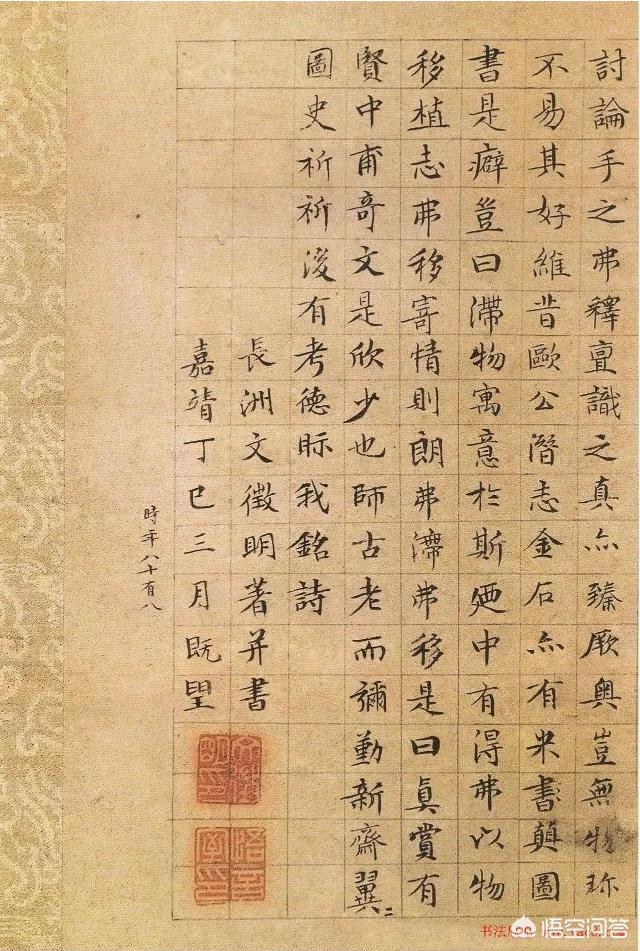 討論手之弗釋亶識之真亦臻厥奧豈無物珎
不易其好維昔歐公潛志金石亦有米書顛圖
書是癖豈曰滯物寓意於斯廼中有得弗以物
移植志弗移寄情則朗弗滯弗移是曰真賞有
賢中甫奇文是欣少也師古老而彌勤新齋翼二
圖史祈祈後有考德眎我銘詩
長洲文徵明著并書
嘉靖丁巳三月既望
時年八十有八
文徵明印
悟言室印
书法
悟空问答